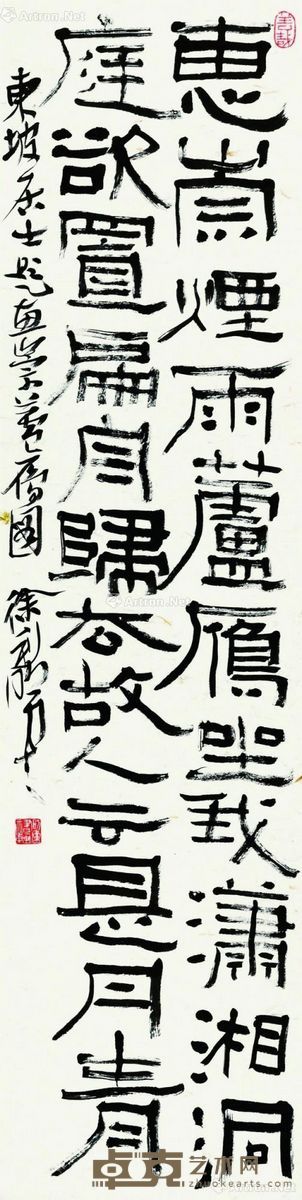 惠崇煙雨蘆鴈坐我瀟湘洞
庭欲置扁舟歸去故人云是丹青
東坡居士題惠崇蘆鴈圖
Artron.Net
卓克艺术网
www.zhuokearts.com